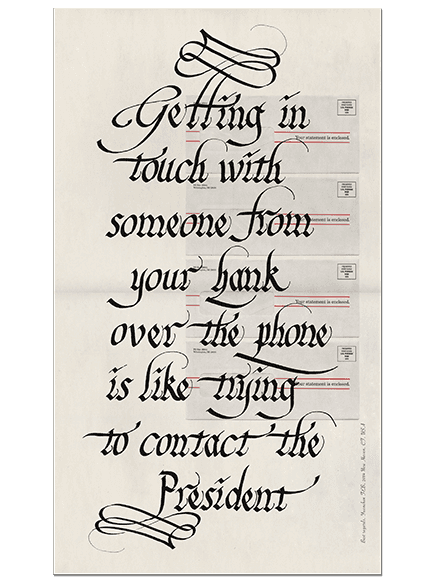 Getting in
touch with
someone from
your bank
over the phone
is like trying
to contact the
President
Your statement is enclosed.
Your statement is enclosed.
Your statement is enclosed.
Your statement is enclosed.